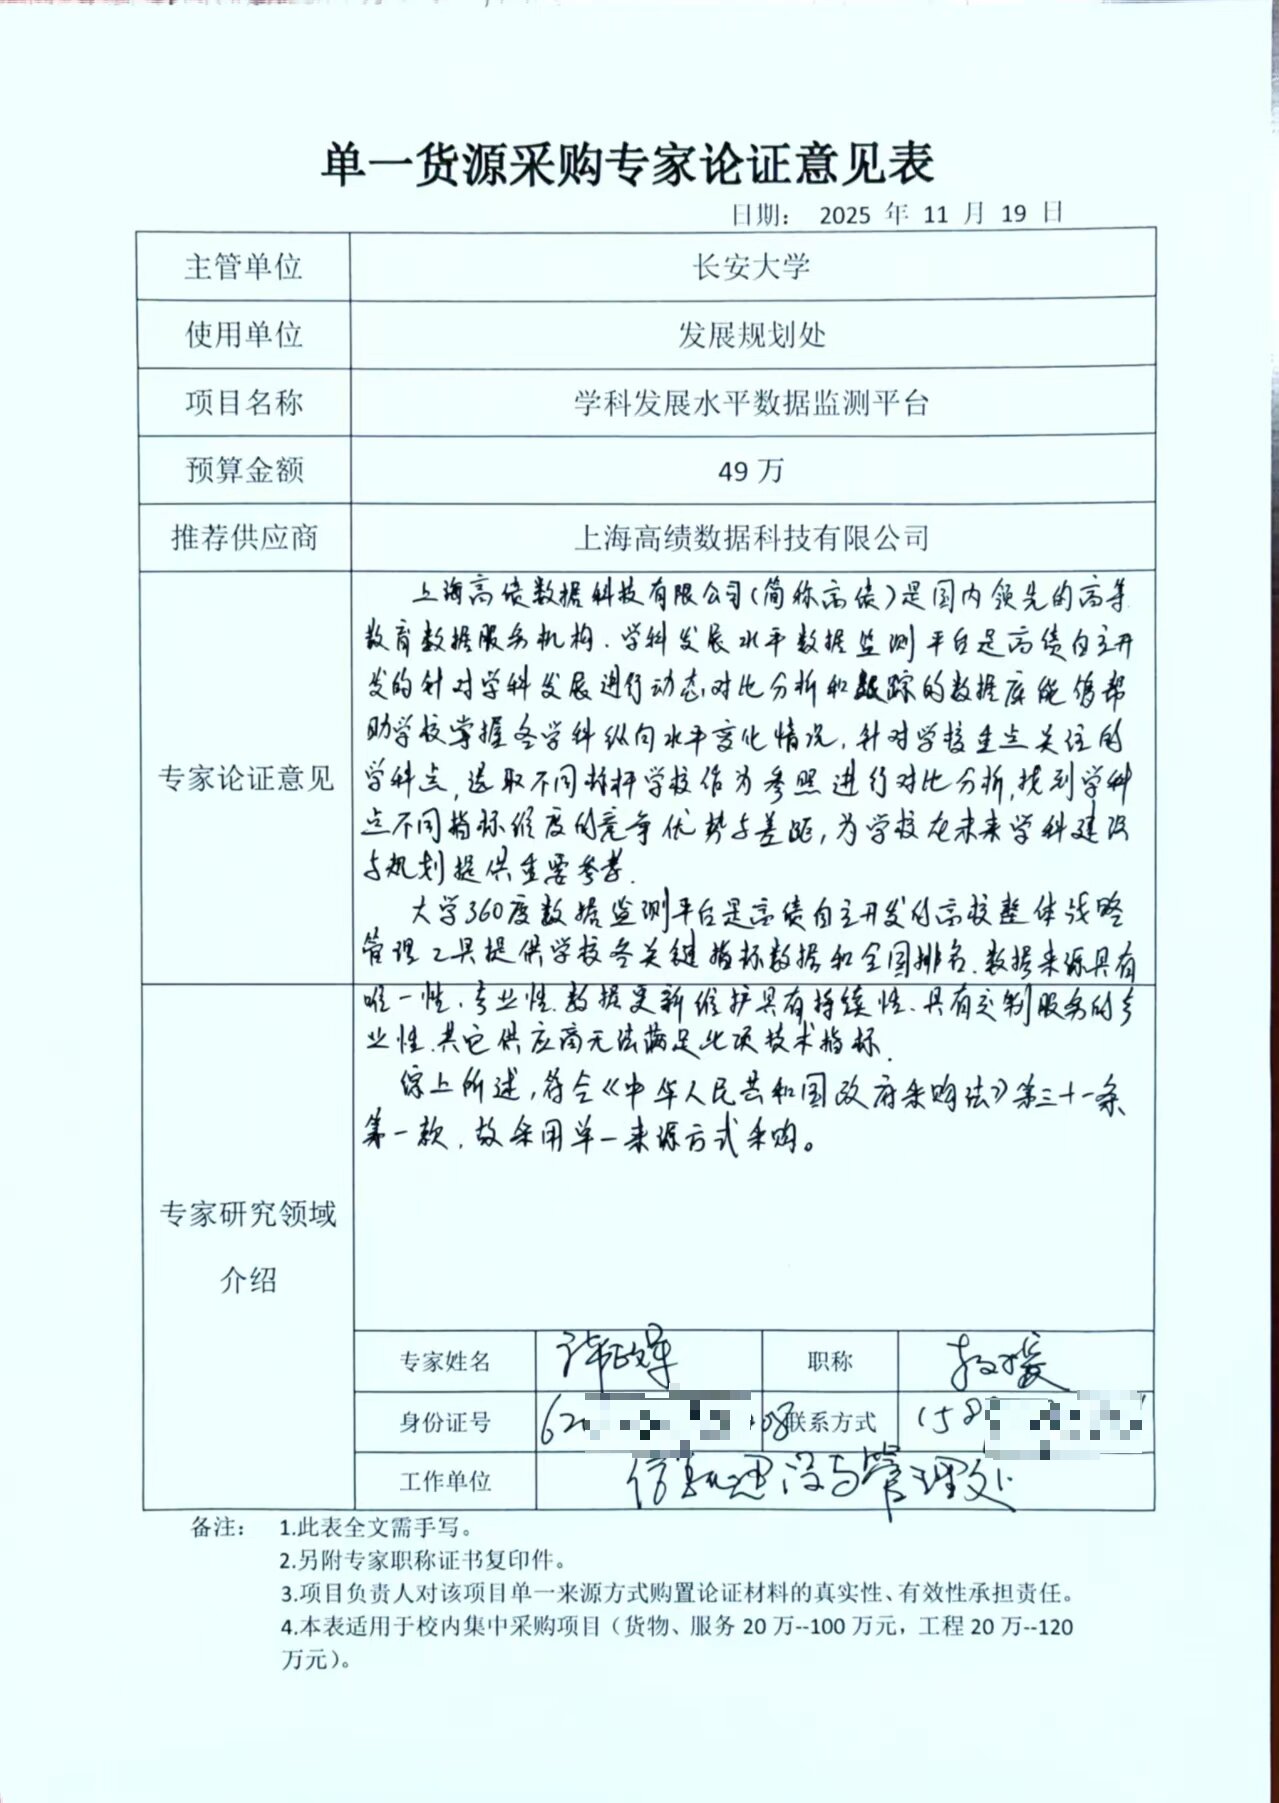 单一货源采购专家论证意见表
日期： 2025 年 11 月 19 日
主管单位 长安大学
使用单位 发展规划处
项目名称 学科发展水平数据监测平台
预算金额 49 万
推荐供应商 上海高绩数据科技有限公司
专家论证意见
上海高绩数据科技有限公司(简称高绩)是国内领先的高等
教育数据服务机构.学科发展水平数据监测平台是高绩自主开
发的针对学科发展进行动态对比分析和跟踪的数据库能够帮
助学校掌握各学科纵向水平变化情况,针对学校重点关注的
学科点,选取不同标杆学校作为参照进行对比分析,找到学科
点不同指标维度的竞争优势与差距,为学校在未来学科建设
与规划提供重要参考.
大学360度数据监测平台是高绩自主开发的高校整体战略
管理工具提供学校各关键指标数据和全国排名.数据来源具有
唯一性、专业性.数据更新维护具有持续性、具有定制服务的专
业性.其它供应商无法满足此项技术指标.
综上所述,符合《中华人民共和国政府采购法》第三十一条
第一款,故采用单一来源方式采购。
专家研究领域
介绍
专家姓名 职称 教授
身份证号 620 08 联系方式 158
工作单位 信息建设与管理处
备注： 1.此表全文需手写。
2.另附专家职称证书复印件。
3.项目负责人对该项目单一来源方式购置论证材料的真实性、有效性承担责任。
4.本表适用于校内集中采购项目（货物、服务 20 万--100 万元，工程 20 万--120
万元）。